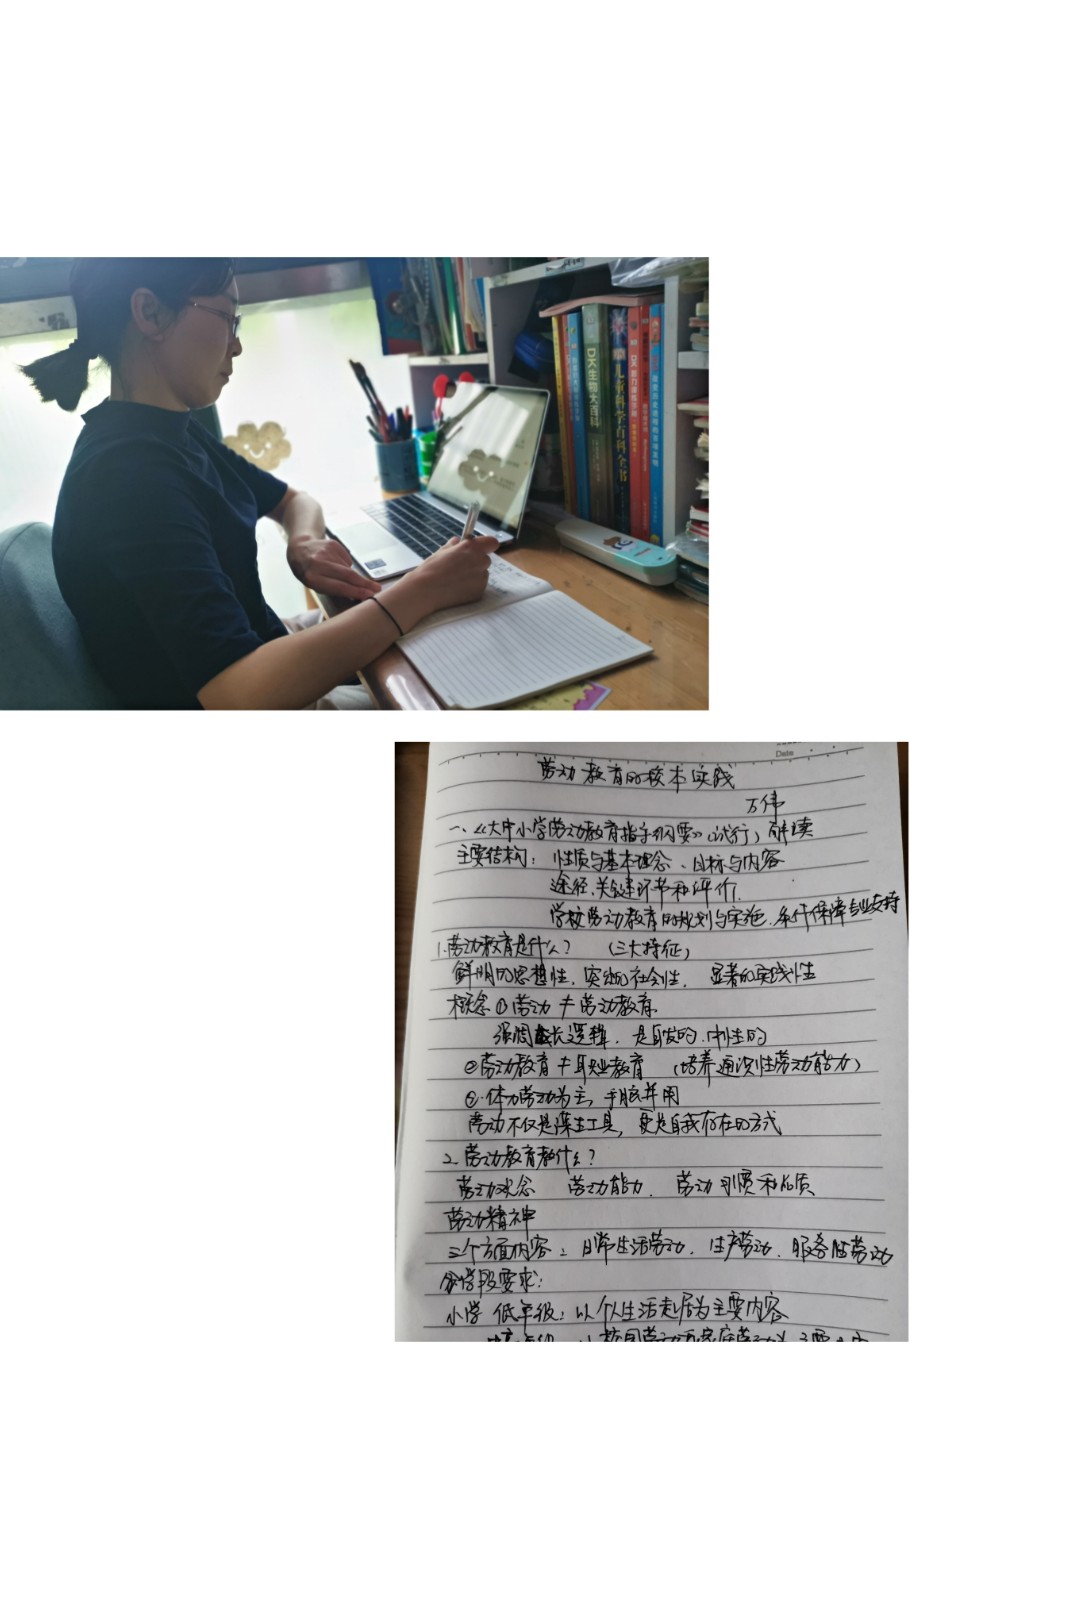 DK生物大百科
DK儿童科学百科全书
Date
劳动教育的校本实践
万伟
一、《大中小学劳动教育指导纲要》(试行)解读
主要结构：性质与基本理念、目标与内容
途径、关键环节和评价
学校劳动教育的规划与实施、条件保障专业支持
1.劳动教育是什么？（三大特征）
鲜明的思想性、突出的社会性、显著的实践性
概念①劳动≠劳动教育
强调成长逻辑，是自发的、中性的
②劳动教育≠职业教育（培养通识性劳动能力）
③体力劳动为主，手脑并用
劳动不仅是谋生工具，更是自我存在的方式
2.劳动教育教什么？
劳动观念 劳动能力、劳动习惯和品质
劳动精神
三个方面内容：日常生活劳动、生产劳动、服务性劳动
分学段要求：
小学 低年级：以个人生活起居为主要内容